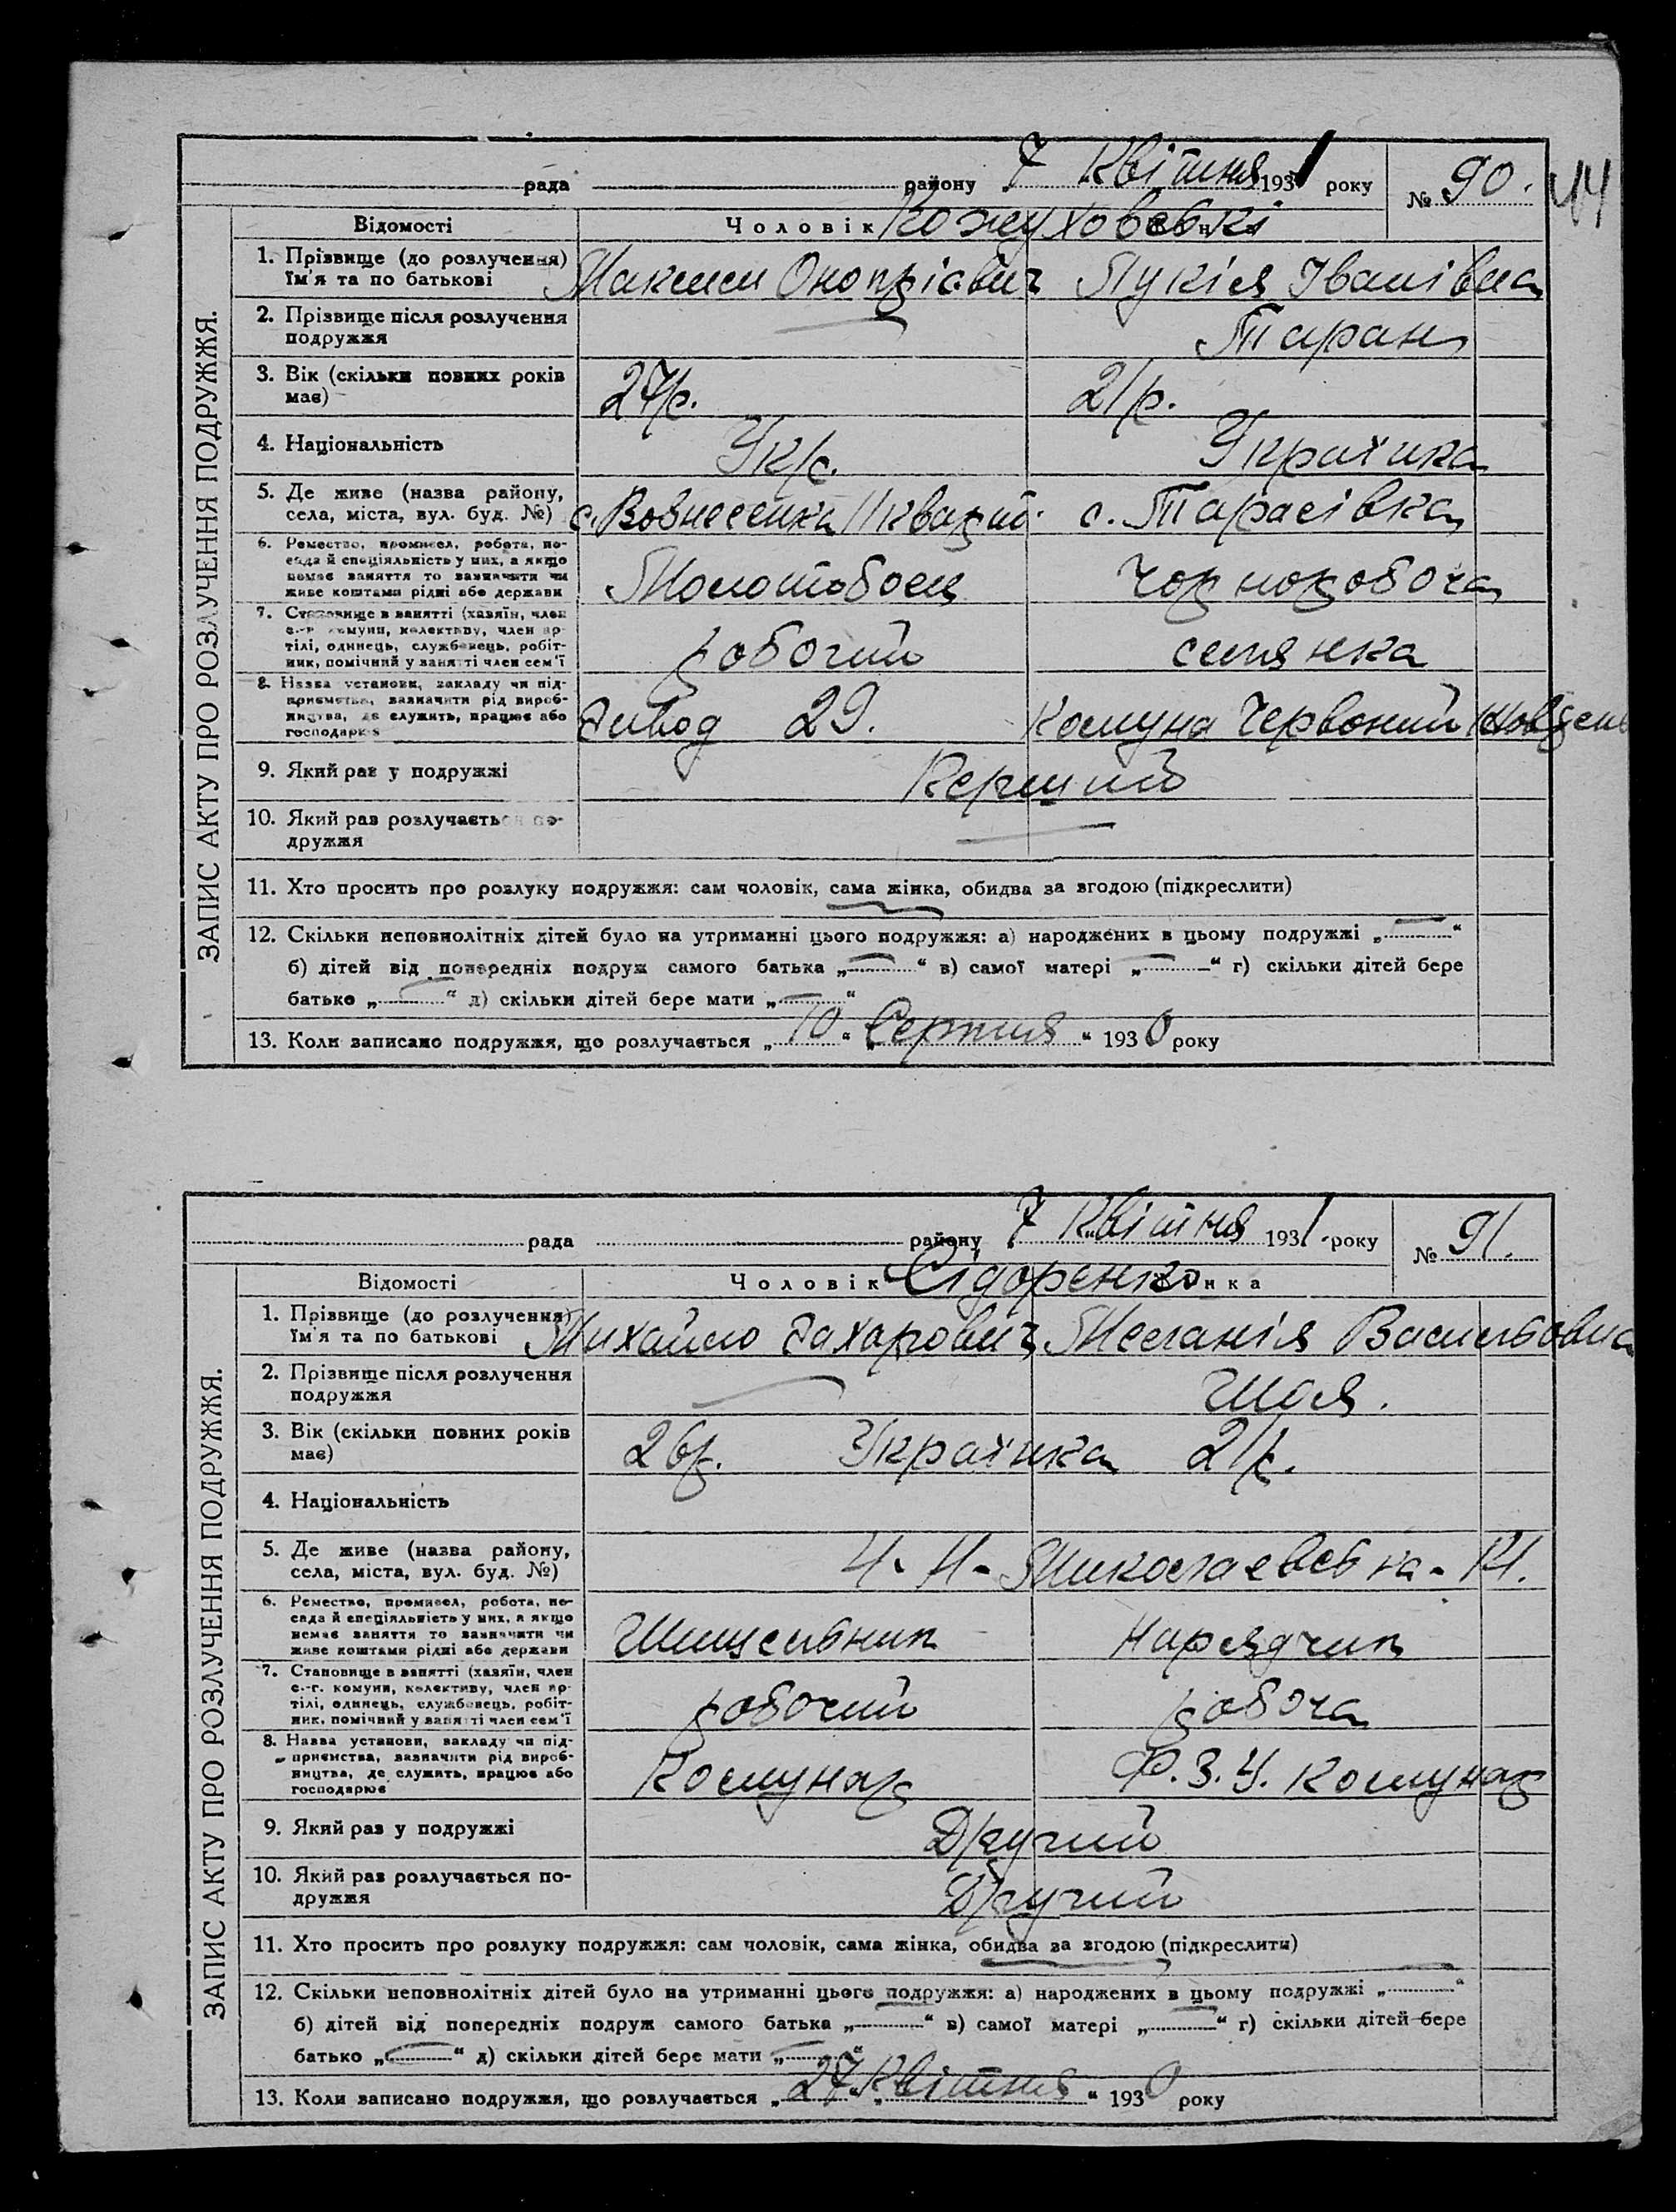 ЗАПИС АКТУ ПРО РОЗЛУЧЕННЯ ПОДРУЖЖЯ.
рада району 7 Квітня 1931 року № 90. 14
Відомості Чоловік Кожуховські
1. Прізвище (до розлучення) Ім'я та по батькові Максим Онопрієвич Лукія Іванівна
2. Прізвище після розлучення подружжя — Таран
3. Вік (скільки повних років має) 27р. 21р.
4. Національність Укр. Українка
5. Де живе (назва району, села, міста, вул. буд. №) с. Вознесенка с. Тарасівка
6. Ремество, промисел, робота, посада й спеціяльність у них, а якщо немає заняття то зазначити чи живе коштами рідні або держави Молотобоец Чорноробоча
7. Становище в занятті (хазяїн, член с.-г. комуни, колективу, член артілі, одинець, службовець, робітник, помічний у занятті член сем'ї робочий селянка
8. Назва установи, закладу чи підприємства, зазначити рід виробництва, де служить, працює або господарює Завод 29. Комуна Червоний
9. Який раз у подружжі Перший
10. Який раз розлучається подружжя —
11. Хто просить про розлуку подружжя: сам чоловік, сама жінка, обидва за згодою (підкреслити)
12. Скільки неповнолітніх дітей було на утриманні цього подружжя: а) народжених в цьому подружжі „—“
б) дітей від попередніх подруж самого батька „—“ в) самої матері „—“ г) скільки дітей бере
батько „—“ д) скільки дітей бере мати „—“
13. Коли записано подружжя, що розлучається „10“ „Серпня“ 1930 року
ЗАПИС АКТУ ПРО РОЗЛУЧЕННЯ ПОДРУЖЖЯ.
рада району 7 Квітня 1931. року № 91.
Відомості Чоловік Сідоренко нка
1. Прізвище (до розлучення) Ім'я та по батькові Михайло Захарович Меланія Васильовна
2. Прізвище після розлучення подружжя — Шоя.
3. Вік (скільки повних років має) 26р. Українка 21р.
4. Національність
5. Де живе (назва району, села, міста, вул. буд. №) Миколаевська - 14.
6. Ремество, промисел, робота, посада й спеціяльність у них, а якщо немає заняття то зазначити чи живе коштами рідні або держави Шишельник Нарядчик
7. Становище в занятті (хазяїн, член с.-г. комуни, колективу, член артілі, одинець, службовець, робітник, помічний у занятті член сем'ї робочий робоча
8. Назва установи, закладу чи підприємства, зазначити рід виробництва, де служить, працює або господарює Комунар Ф.З.У. Комунар
9. Який раз у подружжі Другий
10. Який раз розлучається подружжя Другий
11. Хто просить про розлуку подружжя: сам чоловік, сама жінка, обидва за згодою (підкреслити)
12. Скільки неповнолітніх дітей було на утриманні цього подружжя: а) народжених в цьому подружжі „—“
б) дітей від попередніх подруж самого батька „—“ в) самої матері „—“ г) скільки дітей бере
батько „—“ д) скільки дітей бере мати „—“
13. Коли записано подружжя, що розлучається „27“ „Квітня“ 1930 року